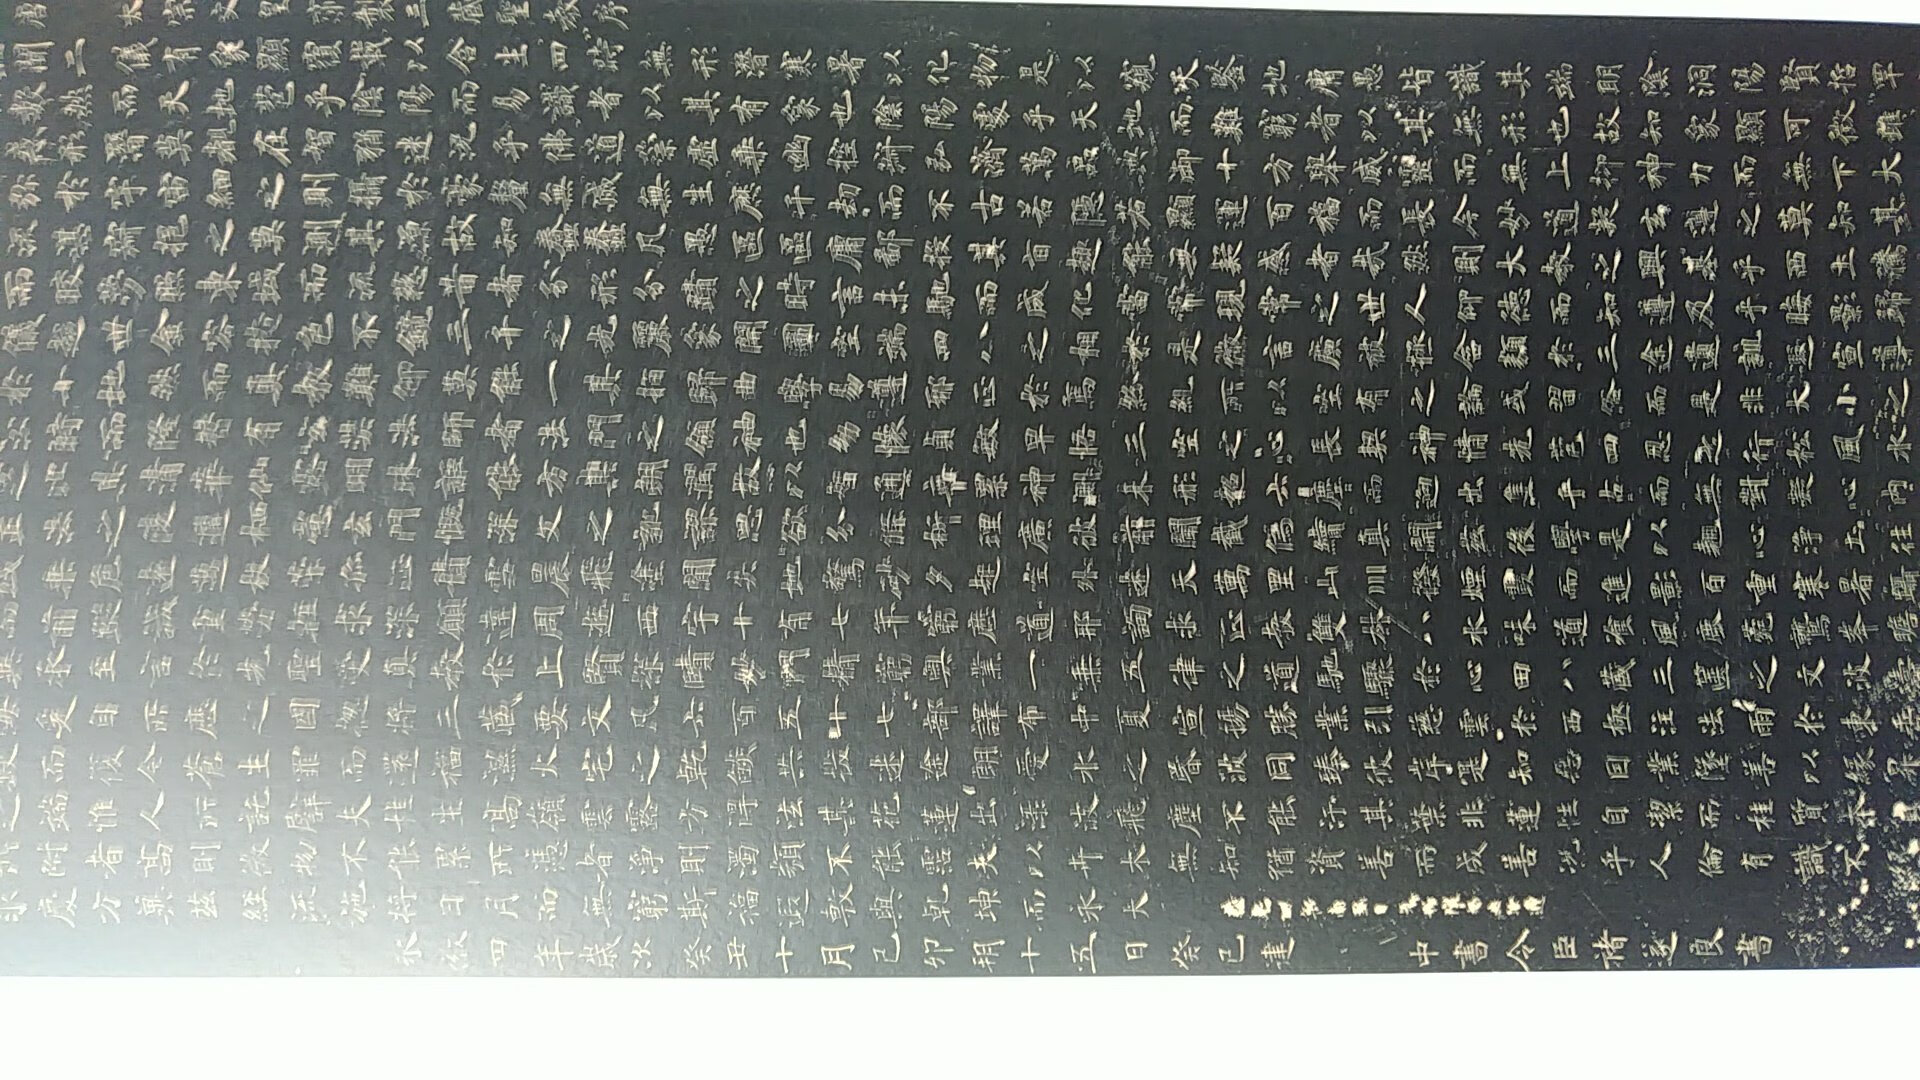 唐太宗文皇帝製三藏聖教序
聞二儀有象顯覆載以含生四時無形潛寒暑以化物是以窺天鑒地庸愚皆識其端明陰洞陽賢哲罕
數然而天地苞乎陰陽而易識者以其有象也陰陽處乎天地而難窮者以其無形也故知象顯可徵雖
惑形潛莫覩在智猶迷況乎佛道崇虛乘幽控寂弘濟萬品典御十方舉威靈而無上抑神力而無下大
彌於宇宙細之則攝於毫釐無滅無生歷千劫而不古若隱若顯運百福而長今妙道凝玄遵之莫知其
流湛寂挹之莫測其源故知蠢蠢凡愚區區庸鄙投其旨趣能無疑惑者哉然則大教之興基乎西土騰
而皎夢照東域而流慈昔者分形分跡之時言未馳而成化當常現常之世人仰德而知遵及乎晦影歸
儀越世金容掩色不鏡三千之光麗象開圖空端四八之相於是微言廣被拯含類於三途遺訓遐宣導
於十地然而真教難仰莫能一其指歸曲學易遵邪正於焉紛糾所以空有之論或習俗而是非大小之
沿時而隆替有玄奘法師者法門之領袖也幼懷貞敏早悟三空之心長契神情先苞四忍之行松風水
足比其清華仙露明珠詎能方其朗潤故以智通無累神測未形超六塵而迥出隻千古而無對凝心內
正法之陵遲栖慮玄門慨深文之訛謬思欲分條析理廣彼前聞截偽續真開茲後學是以翹心淨土往
域乘危遠邁杖策孤征積雪晨飛途間失地驚砂夕起空外迷天萬里山川撥煙霞而進影百重寒暑躡
而前蹤誠重勞輕求深願達周遊西宇十有七年窮歷道邦詢求正教雙林八水味道飡風鹿菀鷲峯瞻
異承至言於先聖受真教於上賢探賾妙門精窮奧業一乘五律之道馳驟於心田八藏三篋之文波
海爰自所歷之國總將三藏要文凡六百五十七部譯布中夏宣揚勝業引慈雲於西極注法雨於東垂
缺而復全蒼生罪而還福濕火宅之乾焰共拔迷途朗愛水之昏波同臻彼岸是知惡因業墜善以緣昇
之端惟人所託譬夫桂生高嶺雲露方得泫其花蓮出淥波飛塵不能汙其葉非蓮性自潔而桂質本貞
所附者高則微物不能累所憑者淨則濁類不能沾夫以卉木無知猶資善而成善況乎人倫有識不緣
求慶方冀茲經流施將日月而無窮斯福遐敷與乾坤而永大
永徽四年歲次癸丑十月己卯朔十五日癸巳建 中書令臣褚遂良書